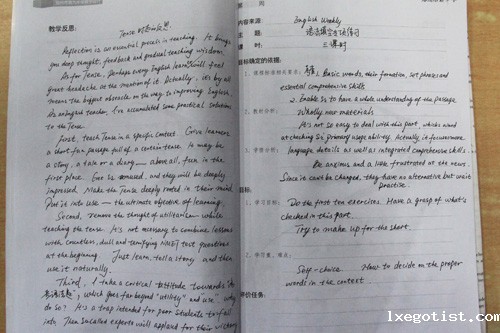 教学反思:
Tense 时态的反思
Reflection is an essential process in teaching. It brings
you deep thought, feedback and gradual teaching wisdom.
As for Tense, Perhaps every English learner will feel
great headache at the mention of it. Actually, it's by all
means the biggest obstacle on the way to improving English.
As a teacher, I've accumulated some practical solutions
to the Tense.
First, teach Tense in a specific context. Give learners
a short fun passage full of a certain tense. It may be
a story, a tale or a diary — above all, fun in the
first place. are amused, and they will be deeply
impressed. Make the Tense deeply rooted in their mind.
Put it into use — the ultimate objective of learning.
Second, remove the thought of utilitarian while
teaching the tense. It's not necessary to combine lessons
with countless, dull and terrifying test questions
at the beginning. Just learn, tell a story and then
use it naturally.
Third, I take a critical attitude towards
, which goes far beyond "utility" and "use". Why
do so? It's a trap intended for poor students to fall
into. Then so-called experts will applaud for their victory
周
内容来源: English Weekly
主 题: 语法填空专项练习
课 时: 三课时
目标确定的依据:
1. Basic words, their formation, set phrases and
essential comprehensive skills
2. Enable Ss to have a whole understanding of the passage.
2、教材分析: Wholly new materials
It's not so easy to deal with this part which aimed
at checking Ss' primary usage ability. Actually it focuses more
language details as well as integrated comprehensive skills.
3、学情分析:
Be anxious and a little frustrated at the news.
Since it can't be changed, they have no alternative but write
practise.
目标:
1、学习目标: Do the first ten exercises. Have a grasp of what's
checked in this part.
Try to make up for the short.
2、学习重、难点:
Self-choice How to decide on the proper
words in the context
评价任务:
www.lxegotist.com